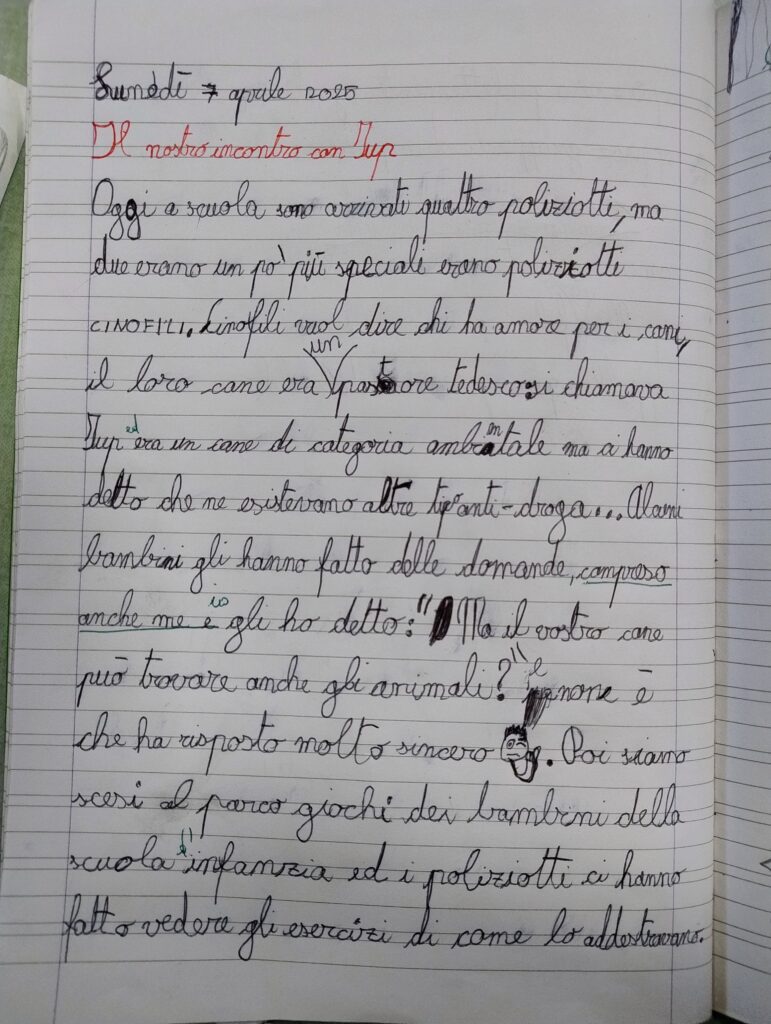 Lunedì 7 aprile 2025
Il nostro incontro con Jup
Oggi a scuola sono arrivati quattro poliziotti, ma
due erano un po' più speciali erano poliziotti
CINOFILI. Cinofili vuol dire chi ha amore per i cani,
il loro cane era un pastore tedesco: si chiamava
Jup ed era un cane di categoria ambientale ma ci hanno
detto che ne esistevano altre tipo anti-droga... Alcuni
bambini gli hanno fatto delle domande, compreso
anche me e io gli ho detto: "Ma il vostro cane
può trovare anche gli animali?" e non è
che ha risposto molto sincero. Poi siamo
scesi al parco giochi dei bambini della
scuola d'infanzia ed i poliziotti ci hanno
fatto vedere gli esercizi di come lo addestravano.